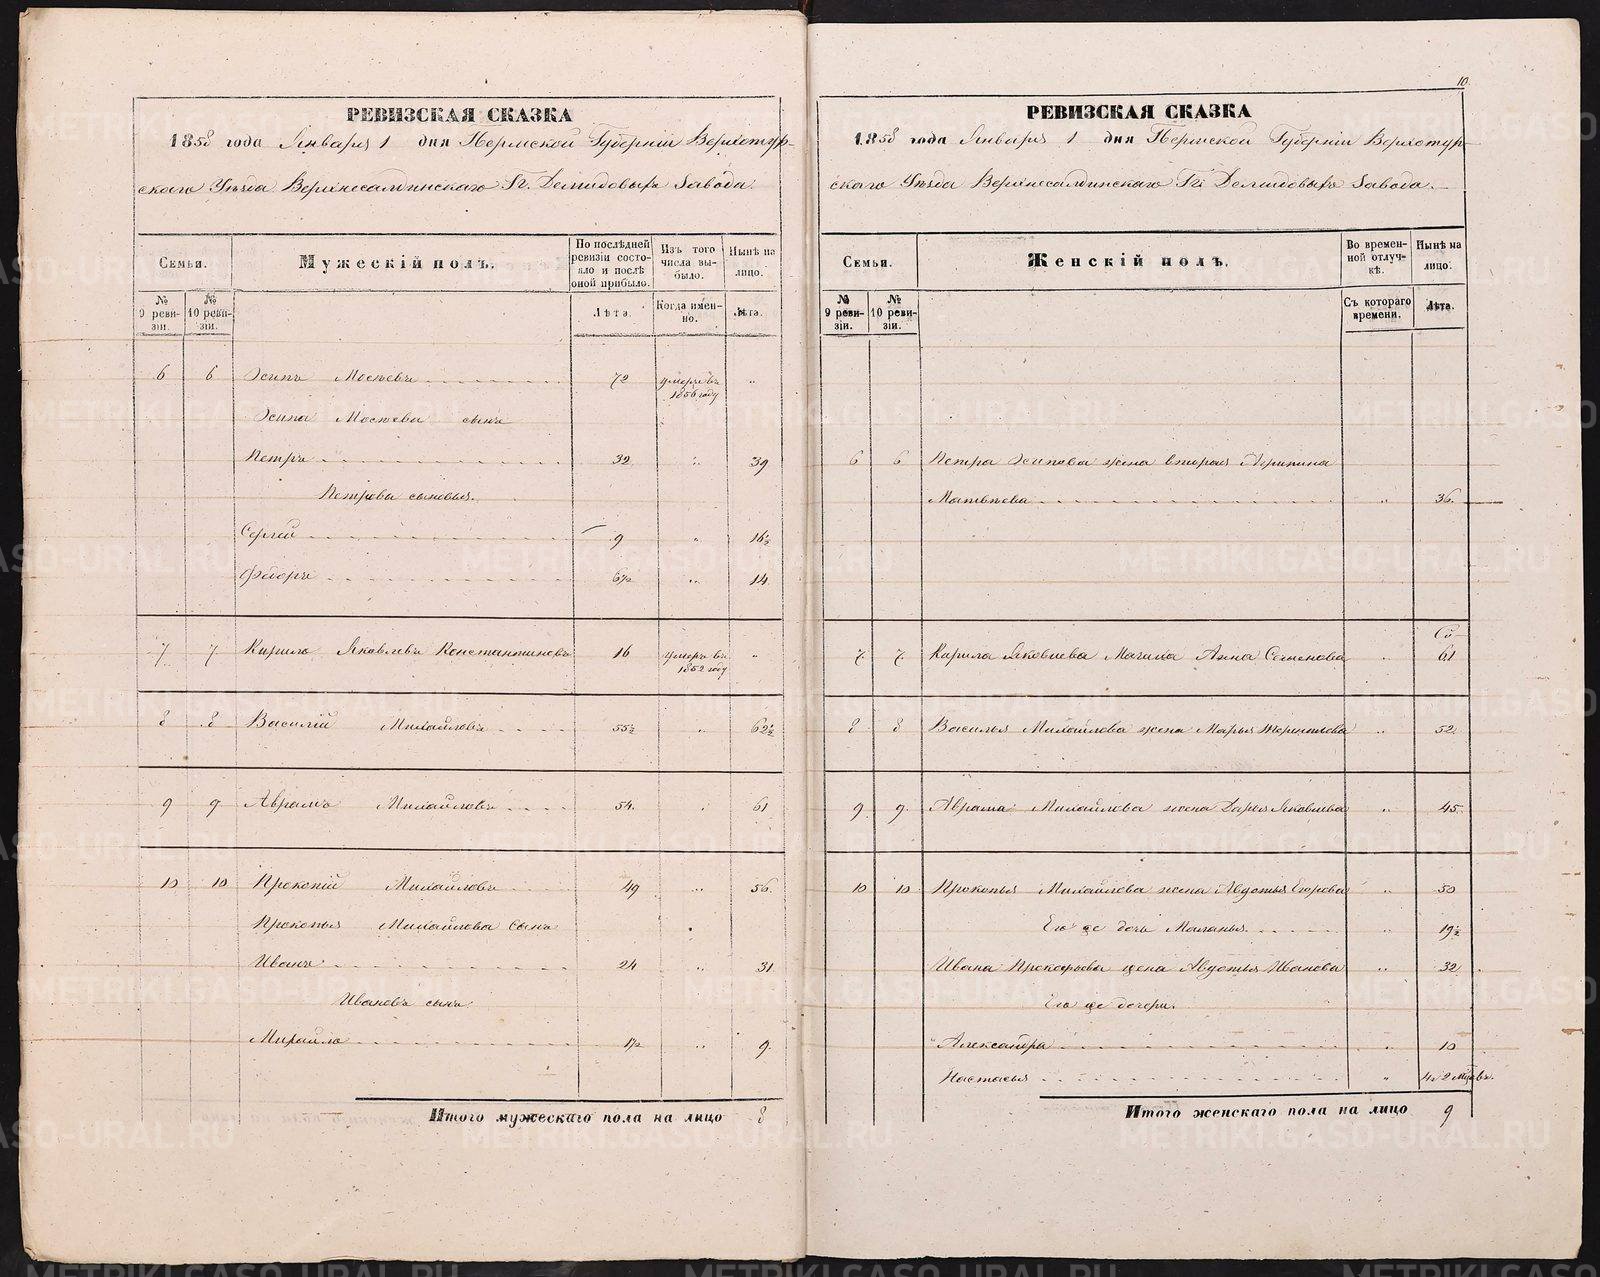 РЕВИЗСКАЯ СКАЗКА
1858 года Января 1 дня Пермской Губерніи Верхотур-
скаго Уѣзда Верхнесалдинскаго Гг. Демидовыхъ Завода.
Семьи.
Мужескій полъ.
По послѣдней ревизіи состояло и послѣ оной прибыло.
Изъ того числа выбыло.
Нынѣ на лицо.
№ 9 ревизіи.
№ 10 ревизіи.
Лѣта.
Когда именно.
Лѣта.
6 6 Осипъ 72 умеръ въ 1856 году "
Осипа сынъ
Петръ 32 " 39
Петрова сыновья.
Сергѣй 9 " 16½
Федоръ 6½ " 14
7 7 Кирило Яковлевъ Константиновъ 16 умеръ въ 1852 году "
8 8 Василій Михайловъ 55½ " 62½
9 9 Аврамъ Михайловъ 54 " 61
10 10 Прокопій Михайловъ 49 " 56.
Прокопья Михайлова сынъ
Иванъ 24 " 31
Ивановъ сынъ
Михайло 1½ " 9
Итого мужескаго пола на лицо 8
10
РЕВИЗСКАЯ СКАЗКА
1858 года Января 1 дня Пермской Губерніи Верхотур-
скаго Уѣзда Верхнесалдинскаго Гг. Демидовыхъ Завода.
Семьи.
Женскій полъ.
Во временной отлучкѣ.
Нынѣ на лицо.
№ 9 ревизіи.
№ 10 ревизіи.
Съ котораго времени.
Лѣта.
6 6 Петра Осипова жена вторая Агрипина
Матвѣева " 36.
7 7 Кирила Яковлева Мачиха Анна Семенова " 61
8 8 Василья Михайлова жена Марья " 52
9 9 Аврама Михайлова жена Дарья Яковлева " 45
10 10 Прокопья Михайлова жена Авдотья Егорова " 50
Его же дочь Маланья " 19½
Ивана Прокофьева жена Авдотья Иванова " 32
Его же дочери.
Александра " 10
Настасья " 4 и 2 мѣс
Итого женскаго пола на лицо 9
METRIKI.GASO-URAL.RU